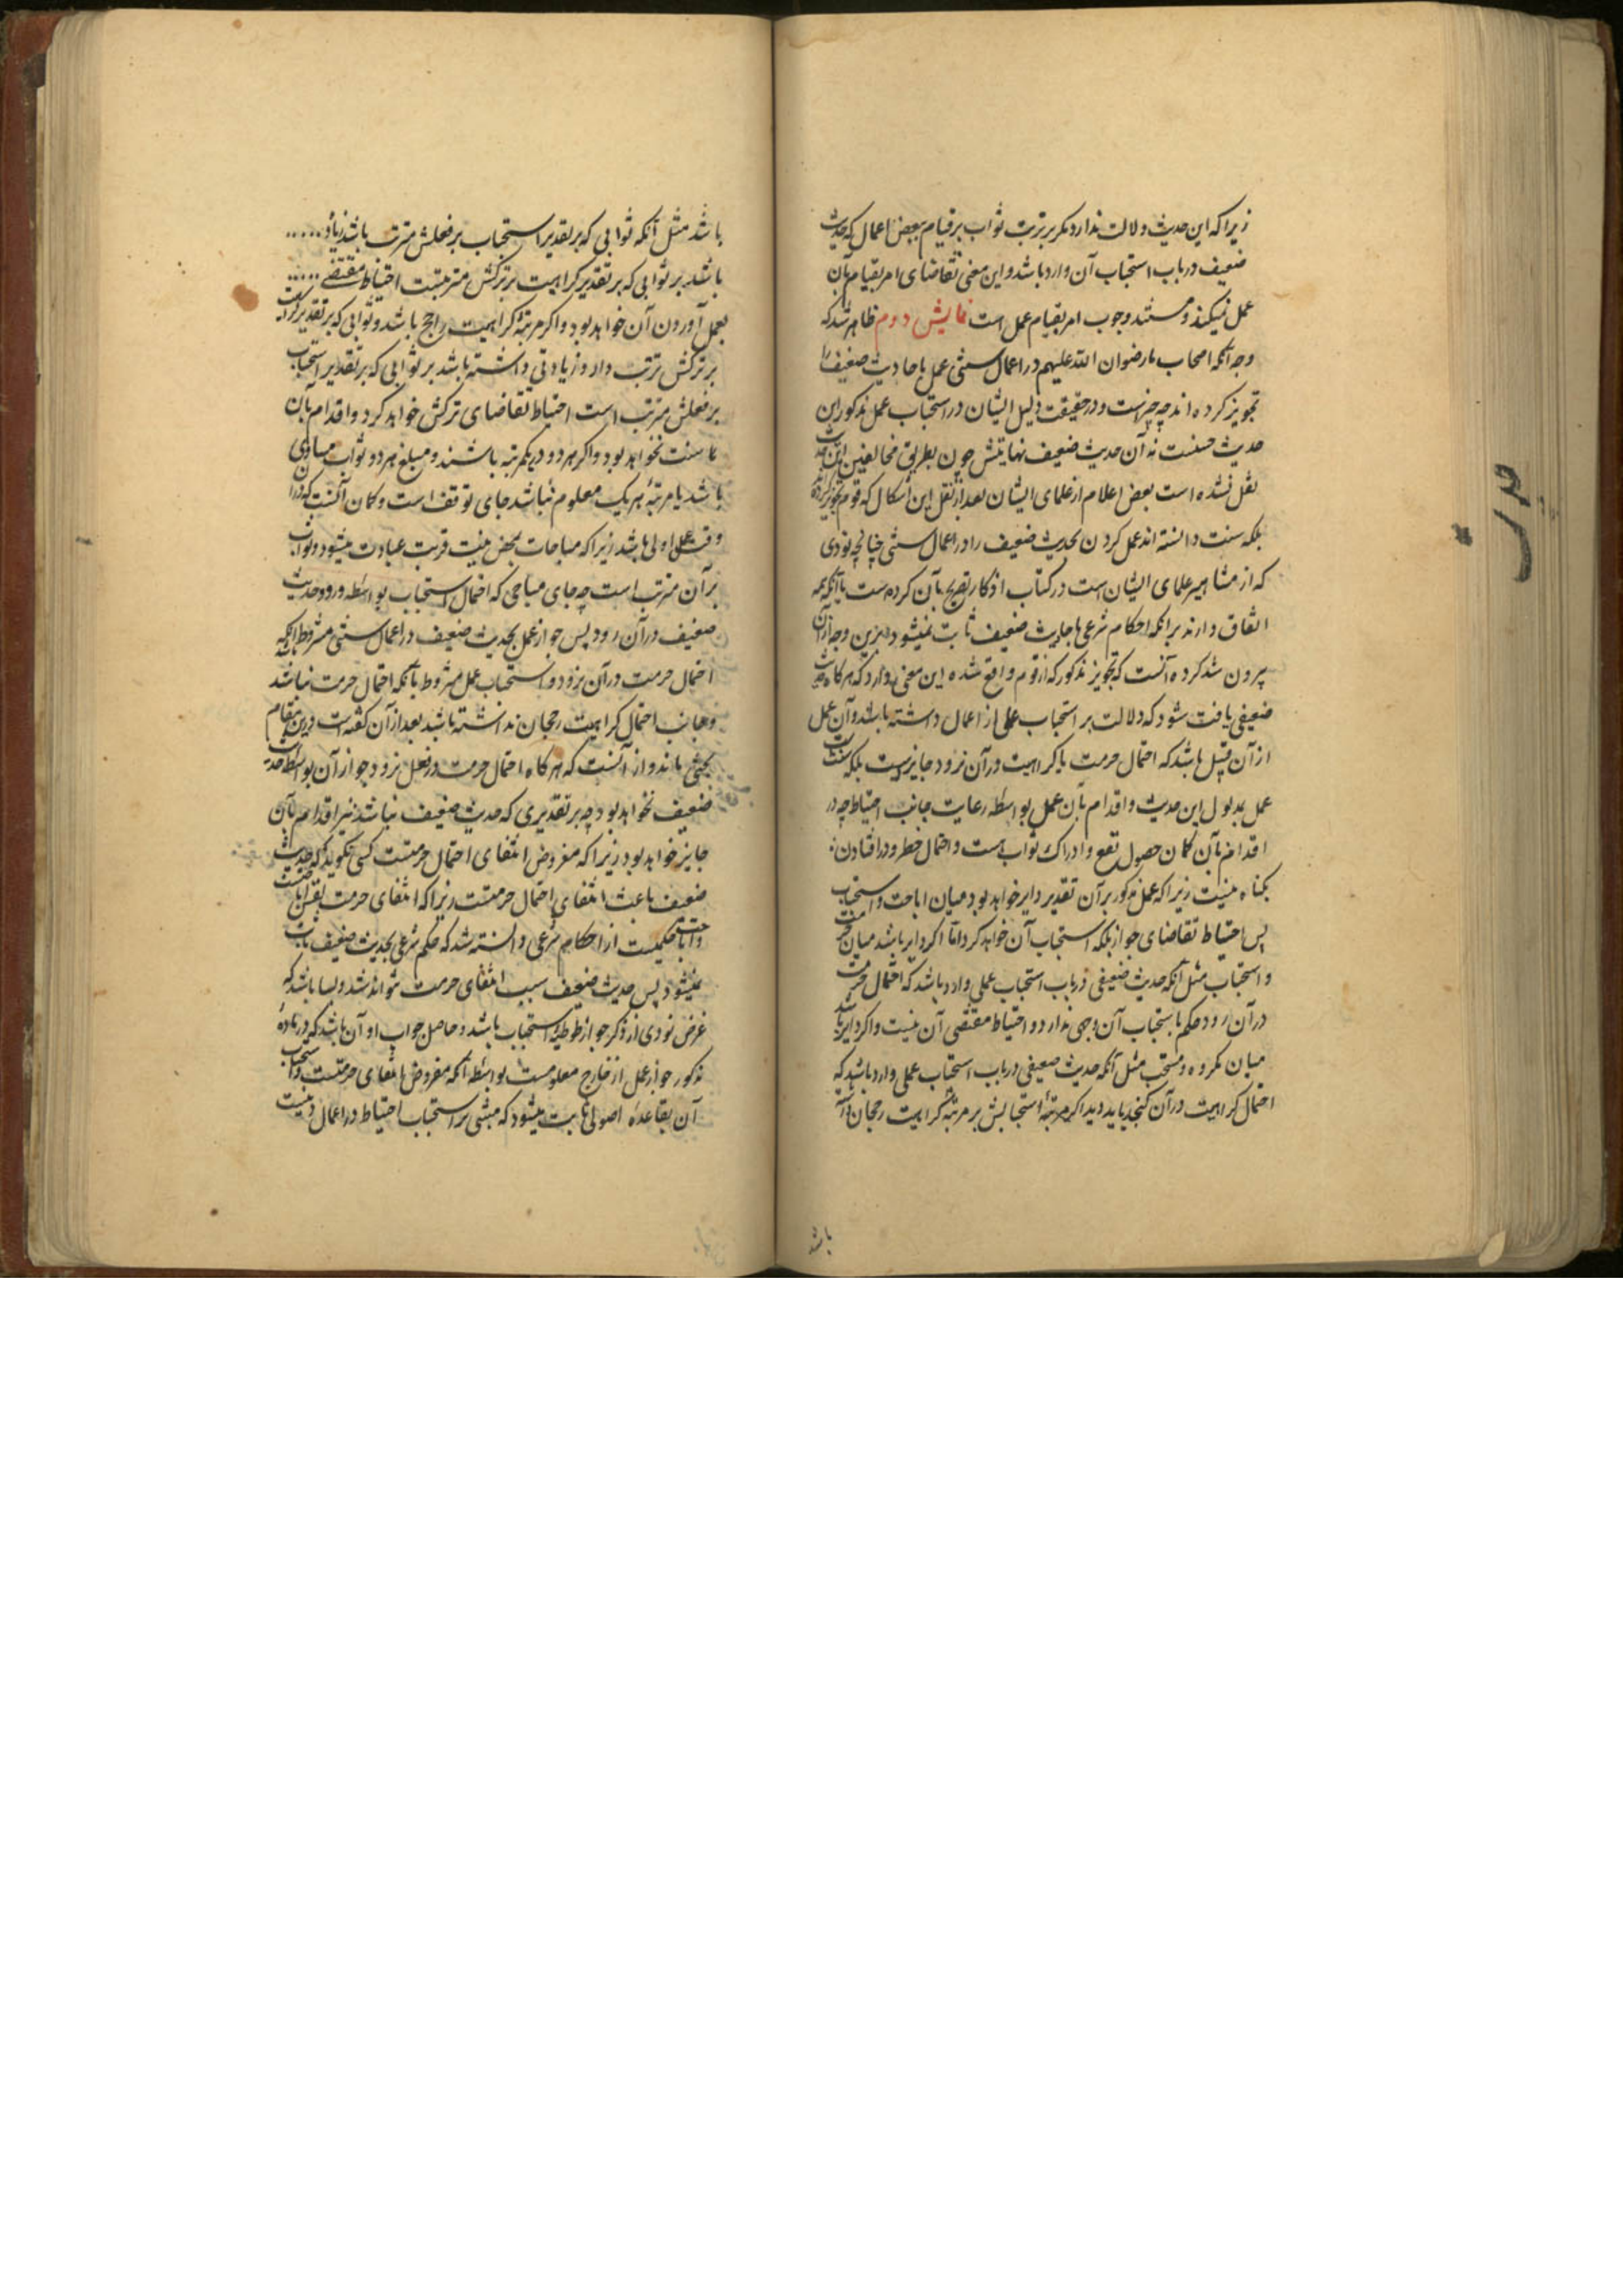 زیرا که این حدیث دلالت ندارد مکر بر ترتب ثواب بر قیام ببعض اعمال که حدیث
ضعیف در باب استحباب آن وارد باشد و این معنی تقاضای امر بقیام بآن
عمل نمیکند و مستند وجوب امر بقیام عمل است نمایش دوم ظاهر شد که
وجه آنکه اصحاب ما رضوان الله علیهم در اعمال سنتی عمل باحادیث ضعیف را
تجویز کرده اند چه چیزست و در حقیقت دلیل ایشان در استحباب عمل مذکور این
حدیث حسنست نه آن حدیث ضعیف نهایتش چون بطریق مخالفین این حدیث
نقل نشده است بعض اعلام از علمای ایشان بعد از نقل این اشکال که قوم تجویز کرده
بلکه سنت دانسته اند عمل کردن بحدیث ضعیف را در اعمال سنتی چنانچه نودی
که از مشاهیر علمای ایشان است در کتاب اذکار تصریح بآن کرده ست با آنکه همه
اتفاق دارند بر انکه احکام شرعی باحادیث ضعیف ثابت نمیشود درین وجه از آن
بیرون شد کرده آنست که تجویز مذکور که از قوم واقع شده این معنی دارد که هر کاه حدیث
ضعیفی یافت شود که دلالت بر استحباب عملی از اعمال داشته باشد و آن عمل
از آن قبیل باشد که احتمال حرمت یا کراهیت در آن نرود جایزست بلکه سنت
عمل بمدلول این حدیث و اقدام بآن عمل بواسطه رعایت جانب احتیاط چه در
اقدام بآن کمان حصول نفع و ادراک ثواب هست و احتمال خطر و در افتادن
بکناه نیست زیرا که عمل مذکور بر آن تقدیر دایر خواهد بود میان اباحت و استحباب
پس احتیاط تقاضای جواز بلکه استحباب آن خواهد کرد اما اکر دایر باشد میان حرمت
و استحباب مثل آنکه حدیث ضعیفی در باب استحباب عملی وارد باشد که احتمال حرمت
در آن رود حکم باستحباب آن وجهی ندارد و احتیاط مقتضی آن نیست و اکر دایر باشد
میان مکروه و مستحب مثل آنکه حدیث ضعیفی در باب استحباب عملی وارد باشد که
احتمال کراهیت در آن کنجد باید دید اکر مرتبهٔ استحبابش بر مرتبهٔ کراهیت رجحان داشته
باشد
باشد مثل آنکه ثوابی که بر تقدیر استحباب بر فعلش مترتب باشد زیاد
باشد بر ثوابی که بر تقدیر کراهیت بر ترکش مترتبست احتیاط مقتضی
بعمل آوردن آن خواهد بود و اکر مرتبهٔ کراهیت راجح باشد و ثوابی که بر تقدیر کراهت
بر ترکش ترتب دارد زیادتی داشته باشد بر ثوابی که بر تقدیر استحباب
بر فعلش مترتب است احتیاط تقاضای ترکش خواهد کرد و اقدام بآن
سنت نخواهد بود و اکر هر دو در یکمرتبه باشند و مبلغ هر دو ثواب مساوی
باشد یا مرتبهٔ هر یک معلوم نباشد جای توقف است و کمان آنست که
عمل اولی باشد زیرا که مباحات بمحض نیت قربت عبادت میشود و ثواب
بر آن مترتب است چه جای مباحی که احتمال استحباب بواسطه ورود حدیث
ضعیف در آن رود پس جواز عمل بحدیث ضعیف در اعمال سنتی مشروط بآنکه
احتمال حرمت در آن نرود و استحباب عمل مشروط بآنکه احتمال حرمت نباشد
و جانب احتمال کراهیت رجحان نداشته باشد بعد از آن کفته است درین مقام
بحثی ماند و از آنست که هر کاه احتمال حرمت در فعل نرود جواز آن بواسطه حدیث
ضعیف نخواهد بود چه بر تقدیری که حدیث ضعیف نباشد نیز اقدام بآن
جایز خواهد بود زیرا که مفروض انتفای احتمال حرمتست کسی نکوید که حدیث
ضعیف باعث انتفای احتمال حرمتست زیرا که انتفای حرمت
حکمیست از احکام شرعی و دانسته شد که حکم شرعی بحدیث ضعیف ثابت
نمیشود پس حدیث ضعیف سبب انتفای حرمت نتواند شد و بسا باشد که
غرض نودی از ذکر جواز طوطیهٔ استحباب باشد و حاصل جواب او آن باشد که در ماده
مذکور جواز عمل از خارج معلومست بواسطه آنکه مفروض انتفای حرمتست و استحباب
آن بقاعدهٔ اصولی ثابت میشود که مبتنی بر استحباب احتیاط در اعمال